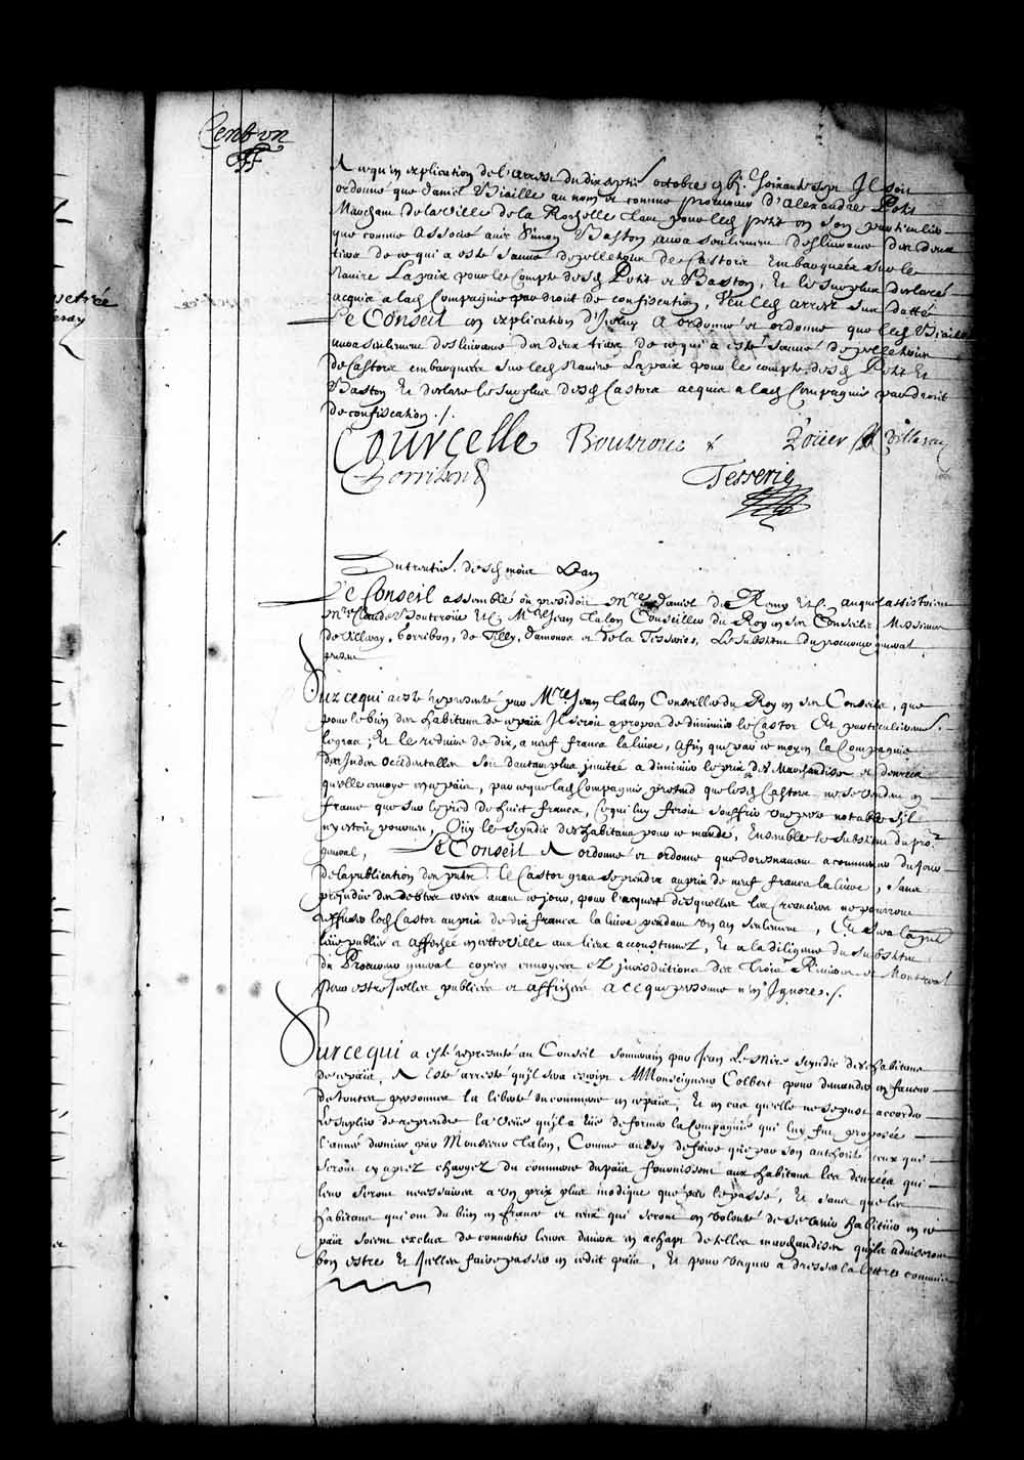 Cent un
A ce qu'en explication de l'arrest du dix septie octobre g bj.c soixante sept Il soit
ordonné que daniel Biaille au nom et comme procureur d'alexandre Petit
Marchant de la Ville de la Rochelle tant pour led petit en son particulier
que comme Associé avec Simon Baston aura seulement deslivrance des deux
tiers de ce qui a esté sauvé de pelleterie de Castors Embarquées sur le
Navire La paix pour le Compte desd Petit et Baston, Et le surplus declaré
acquis a lad Compagnie par droit de confiscation, Veu led arrest sus datté
Le Conseil en explication d'Iceluy A ordonné et ordonne que led Biaille
aura seulement deslivrance des deux tiers de ce qui a esté sauvé de pelleterie
de Castors embarquées sur led Navire La paix pour le compte desd Petit et
Baston Et declare le surplus desd Castors acquis a lad Compagnie par droit
de confiscation ./.
Courcelle Boutroue Roüer de Villeray
Gorribon Tesserie
Du trentie. desd mois & an
Le Conseil assemblé où presidoit M.re daniel de Remy &c. auquel assistoient
M.re Claude Boutroüe &c. M.re Jean Talon Conseiller du Roy en ses Conseils, Messieurs
de Villeray, Gorribon, de Tilly, Damours et de la Tesserie, Le Substitut du procureur general
present
Sur ce qui a esté representé par M.re Jean Talon Conseiller du Roy en ses Conseils, que
pour le bien des habitans de ce païs Il seroit apropos de diminuer le Castor Et particulierem.
le gras, Et le reduire de dix, a neuf francs la livre, Afin que par ce moyen la Compagnie
des Indes Occidentalles soit d'autant plus invitée a diminuer le prix des Marchandises et denrées
qu'elle envoye en ce païs, parce que lad Compagnie pretend que lesd Castors ne se vendent en
france que sur le pied de huict francs, Ce qui luy feroit souffrir une perte notable s'Il
n'y estoit pourveu, Oüy le Syndic des habitans pour ce mandé, Ensemble le substitut du pro.r
general, Le Conseil A ordonné et ordonne que doresnavant a commencer du jour
de la publication des pntes le Castor gras se prendra au prix de neuf francs la livre, sans
prejudice des debtes créées avant ce jour, pour l'acquit desquelles les creanciers ne pourront
refuser led Castor au prix de dix francs la livre pendant un an seulement, Et sera la pnte
leüe publiée et affichée en cette Ville aux lieux accoustumez, Et a la diligence du substitut
du Procureur general copies envoyées ez jurisdictions des Trois Rivieres et Montreal
pour estre Icelles publiées et affichées a ce que personne n'en Ignore ./.
Sur ce qui a esté representé au Conseil Souverain par Jean Le Mire Syndic des habitans
de ce païs, A Esté arresté qu'Il sera escript A Monseigneur Colbert pour demander en faveur
de toutes personnes la liberté du commerce en ce païs, Et en cas qu'elle ne se pust accorder
Le suplier de reprendre la veüe qu'Il a eüe de former la Compagnie qui luy fut proposée
l'année derniere par Monsieur Talon, Comme aussy de faire que par son authorité ceux qui
seront cy aprez chargez du commerce du païs fournissent aux habitans les denrées qui
leur seront necessaires a un prix plus modique que par le passé, Et sans que les
habitans qui ont du bien en france et ceux qui seront en volonté de se venir habituer en ce
païs soient exclus de convertir leurs deniers en achapt de telles marchandises qu'Ils adviseront
bon estre Et Icelles faire passer en cedit païs, Et pour vacquer a dresser la lettre commise